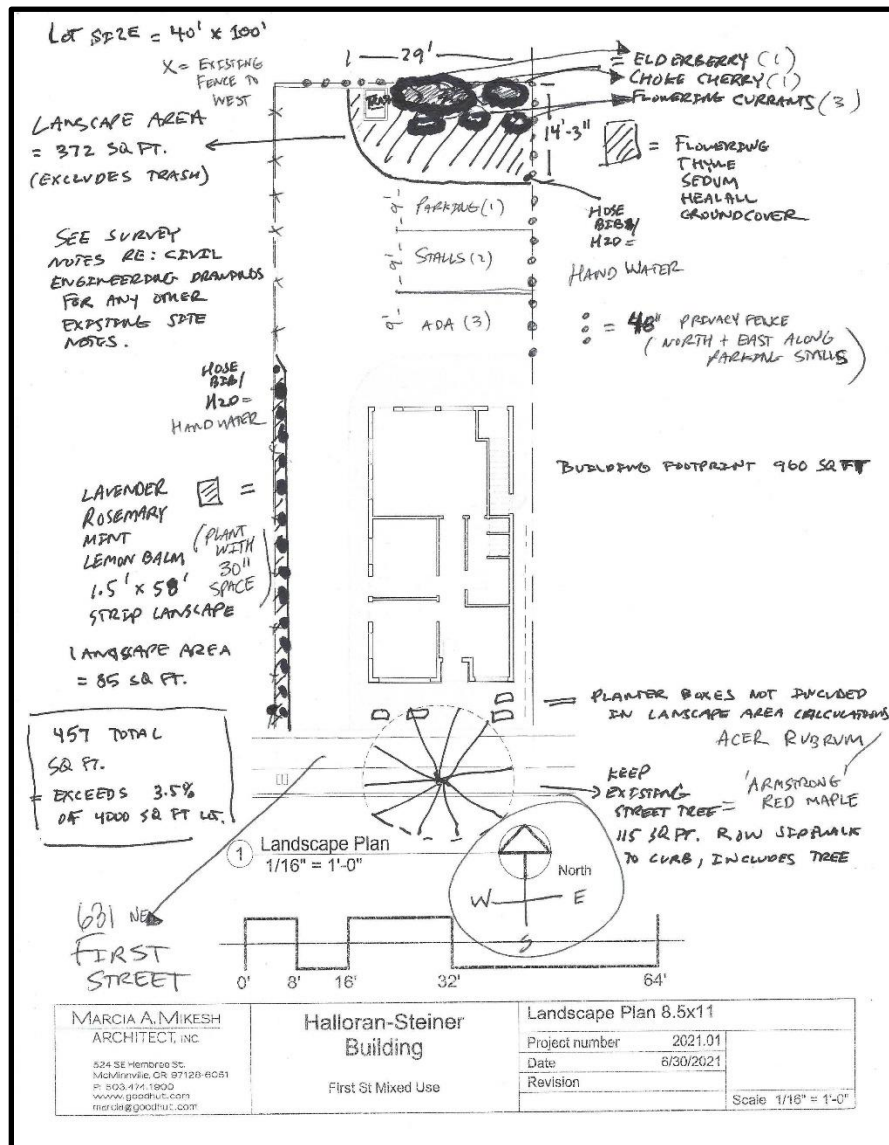 LOT SIZE = 40' x 100'
X = EXISTING
FENCE TO
WEST
29'
= ELDERBERRY (1)
CHOKE CHERRY (1)
FLOWERING CURRANTS (3)
TRASH
14'-3"
LANSCAPE AREA
= 372 SQ FT.
(EXCLUDES TRASH)
= FLOWERING
THYME
SEDUM
HEALALL
GROUNDCOVER
9'
PARKING (1)
9'
STALLS (2)
9'
ADA (3)
HOSE
BIBB/
H2O =
HAND WATER
SEE SURVEY
NOTES RE: CIVIL
ENGINEERING DRAWINGS
FOR ANY OTHER
EXISTING SITE
NOTES.
= 48" PRIVACY FENCE
(NORTH + EAST ALONG
PARKING STALLS)
HOSE
BIB/
H2O =
HAND WATER
BUILDING FOOTPRINT 960 SQ FT
LAVENDER =
ROSEMARY
MINT
LEMON BALM
1.5' x 58'
STRIP LANSCAPE
(PLANT
WITH
30"
SPACE)
LANDSCAPE AREA
= 85 SQ FT.
= PLANTER BOXES NOT INCLUDED
IN LANSCAPE AREA CALCULATIONS
ACER RUBRUM
457 TOTAL
SQ FT.
= EXCEEDS 3.5%
OF 4000 SQ FT LOT.
KEEP
EXISTING
STREET TREE =
'ARMSTRONG'
RED MAPLE
115 SQ FT. ROW SIDEWALK
TO CURB, INCLUDES TREE
1 Landscape Plan
1/16" = 1'-0"
North
W E
S
631 NE
FIRST
STREET
0' 8' 16' 32' 64'
MARCIA A. MIKESH
ARCHITECT, INC
524 SE Hembree St.
McMinnville, OR 97128-6061
P: 503.474.1900
www.goodhut.com
marcia@goodhut.com
Halloran-Steiner
Building
First St Mixed Use
Landscape Plan 8.5x11
Project number 2021.01
Date 6/30/2021
Revision
Scale 1/16" = 1'-0"